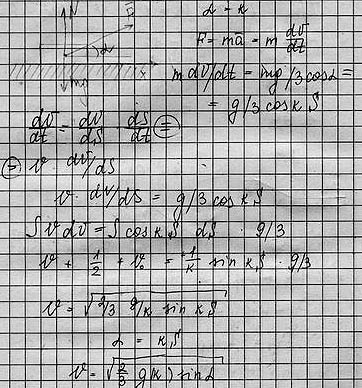 N F
α = k
α
F = ma̅ = m dv̅/dt
mg x
m dv/dt = mg/3 cosα =
= g/3 cos k S
dv/dt = dv/dS · dS/dt =
= v · dv/dS
v · dv/dS = g/3 cos k S
∫ v dv = ∫ cos k S dS · g/3
v + 1/2 + v₀ = +1/k sin k S · g/3
v = √2/3 g/k sin k S
α = k S
v = √(2/3 g/k) sin α